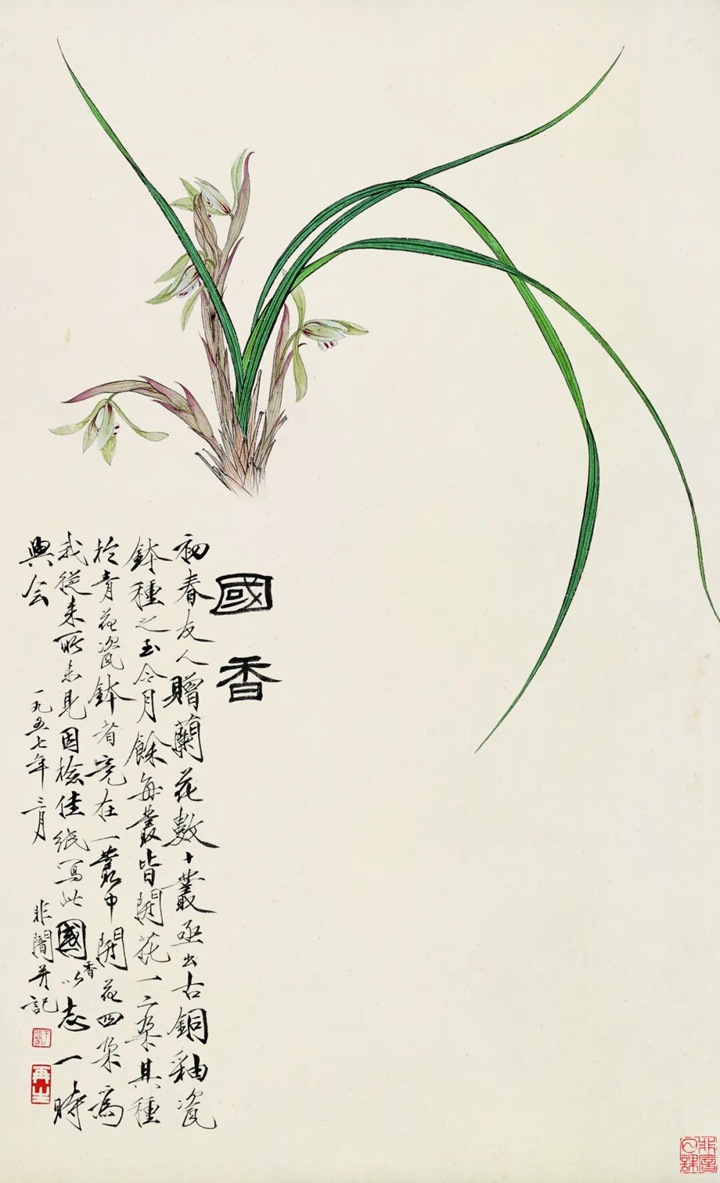 國香
初春友人贈蘭花數十叢亟出古銅釉瓷
鉢種之至今月餘每叢皆開花一二朶其種
於青花瓷鉢者竟在一叢中開花四朶爲
我從来所未見因檢佳紙寫此國香以志一时
興会
一九五七年三月
非闇并記